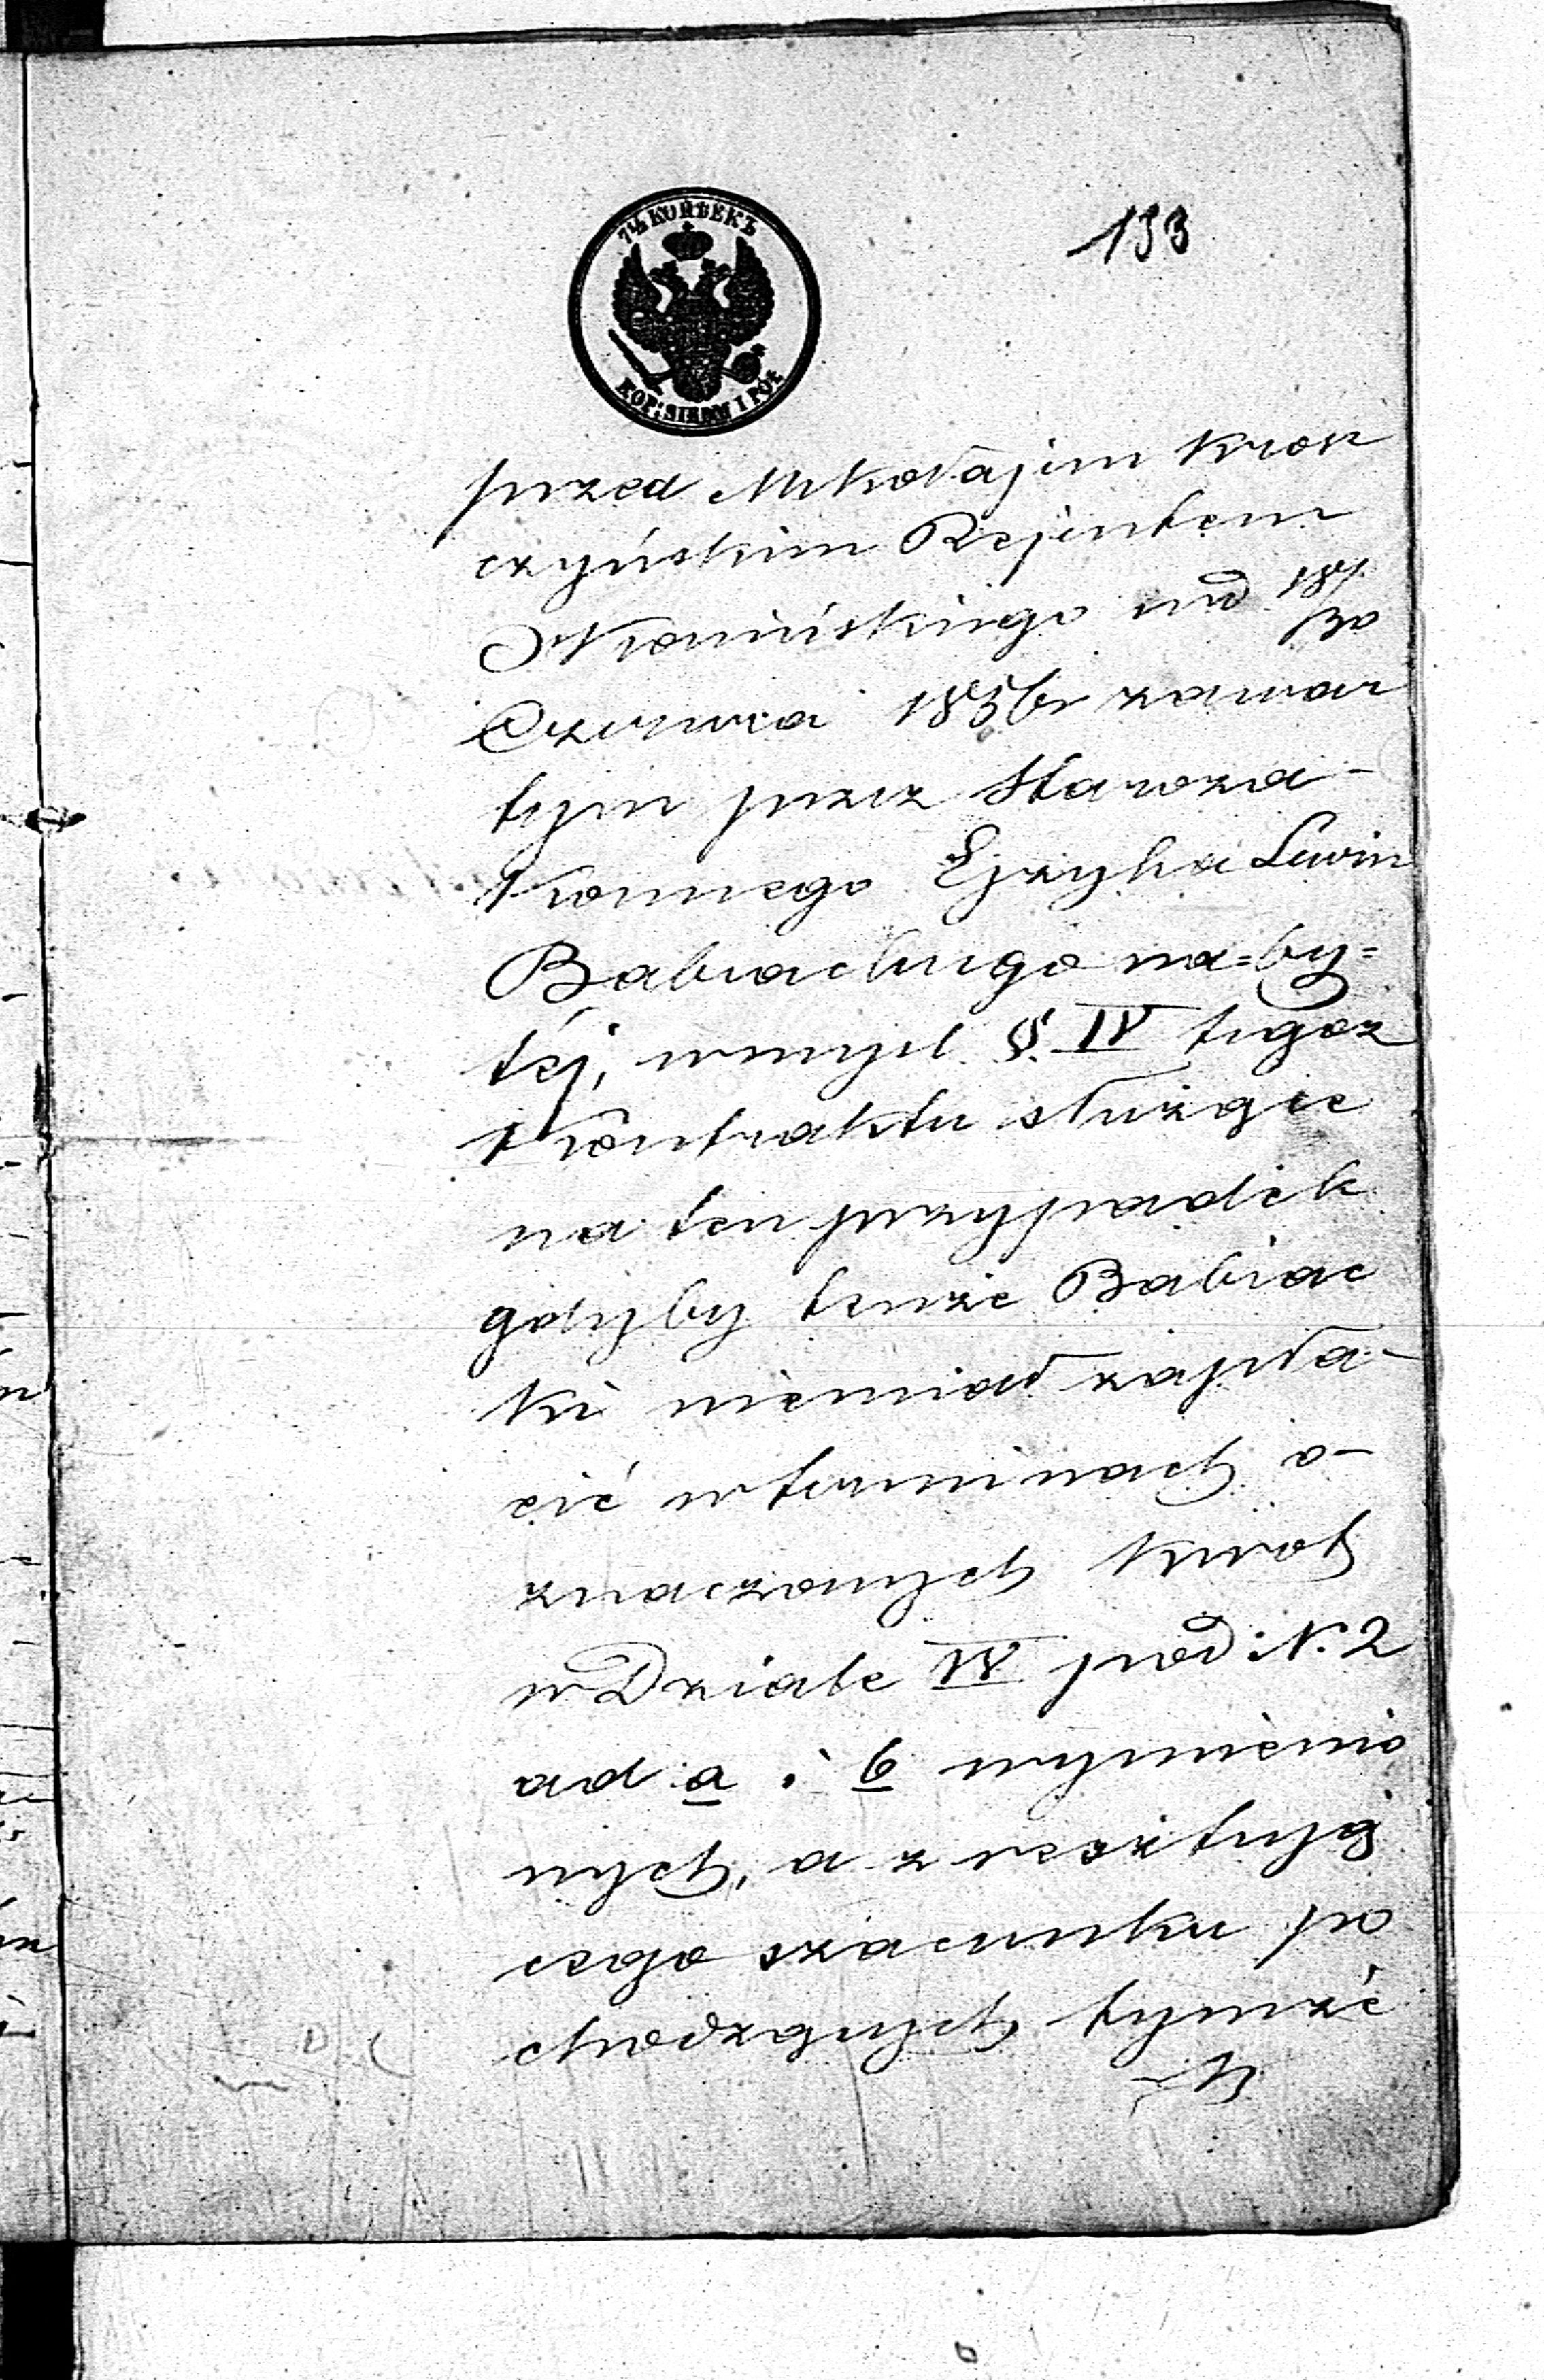 7½ КОПѢЕКЪ
KOP: SIEDM I PÓŁ
193
przed Mikołajem Krop
czyńskim Rejentem
Konińskiego w d. 18/30
Czerwca 1856 r zawar
tym przez Staroza-
konnego Ejzyka Lewin
Babiackiego na=by=
téj, w myśl §. IV tegoż
Kontraktu służące
na ten przypadek
gdyby tenże Babiac
ki niemiał zapła-
cić w terminach o-
znaczonych kwot
w Dziale IV pod: N. 2
ad a i b wymienio
nych, a z resztują
cego szacunku po
chodzących tymże